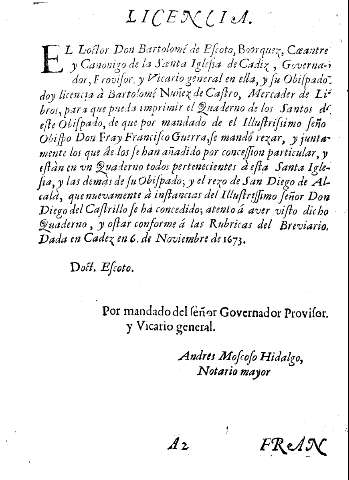 LICENCIA.
EL Doctor Don Bartolomè de Escoto, Bohorquez, Chantre
y Canonigo de la Santa Iglesia de Cadiz, Governa-
dor, Provisor, y Vicario general en ella, y su Obispado
doy licencia à Bartolomè Nuñez de Castro, Mercader de Li-
bros, para que pueda imprimir el Quaderno de los Santos de
este Obispado, de que por mandado de el Illustrissimo seño
Obispo Don Fray Francisco Guerra, se mandò rezar, y junta-
mente los que de los se han añadido por concession particular, y
estàn en vn Quaderno todos pertenecientes à esta Santa Igle-
sia, y las demàs de su Obispado; y el rezo de San Diego de Al-
calà, que nuevamente à instancias del Illustrissimo señor Don
Diego del Castrillo se ha concedido; atento à aver visto dicho
Quaderno, y estar conforme à las Rubricas del Breviario.
Dada en Cadez en 6. de Noviembre de 1673.
Doct. Escoto.
Por mandado del señor Governador Provisor.
y Vicario general.
Andres Moscoso Hidalgo,
Notario mayor
A2 FRAN